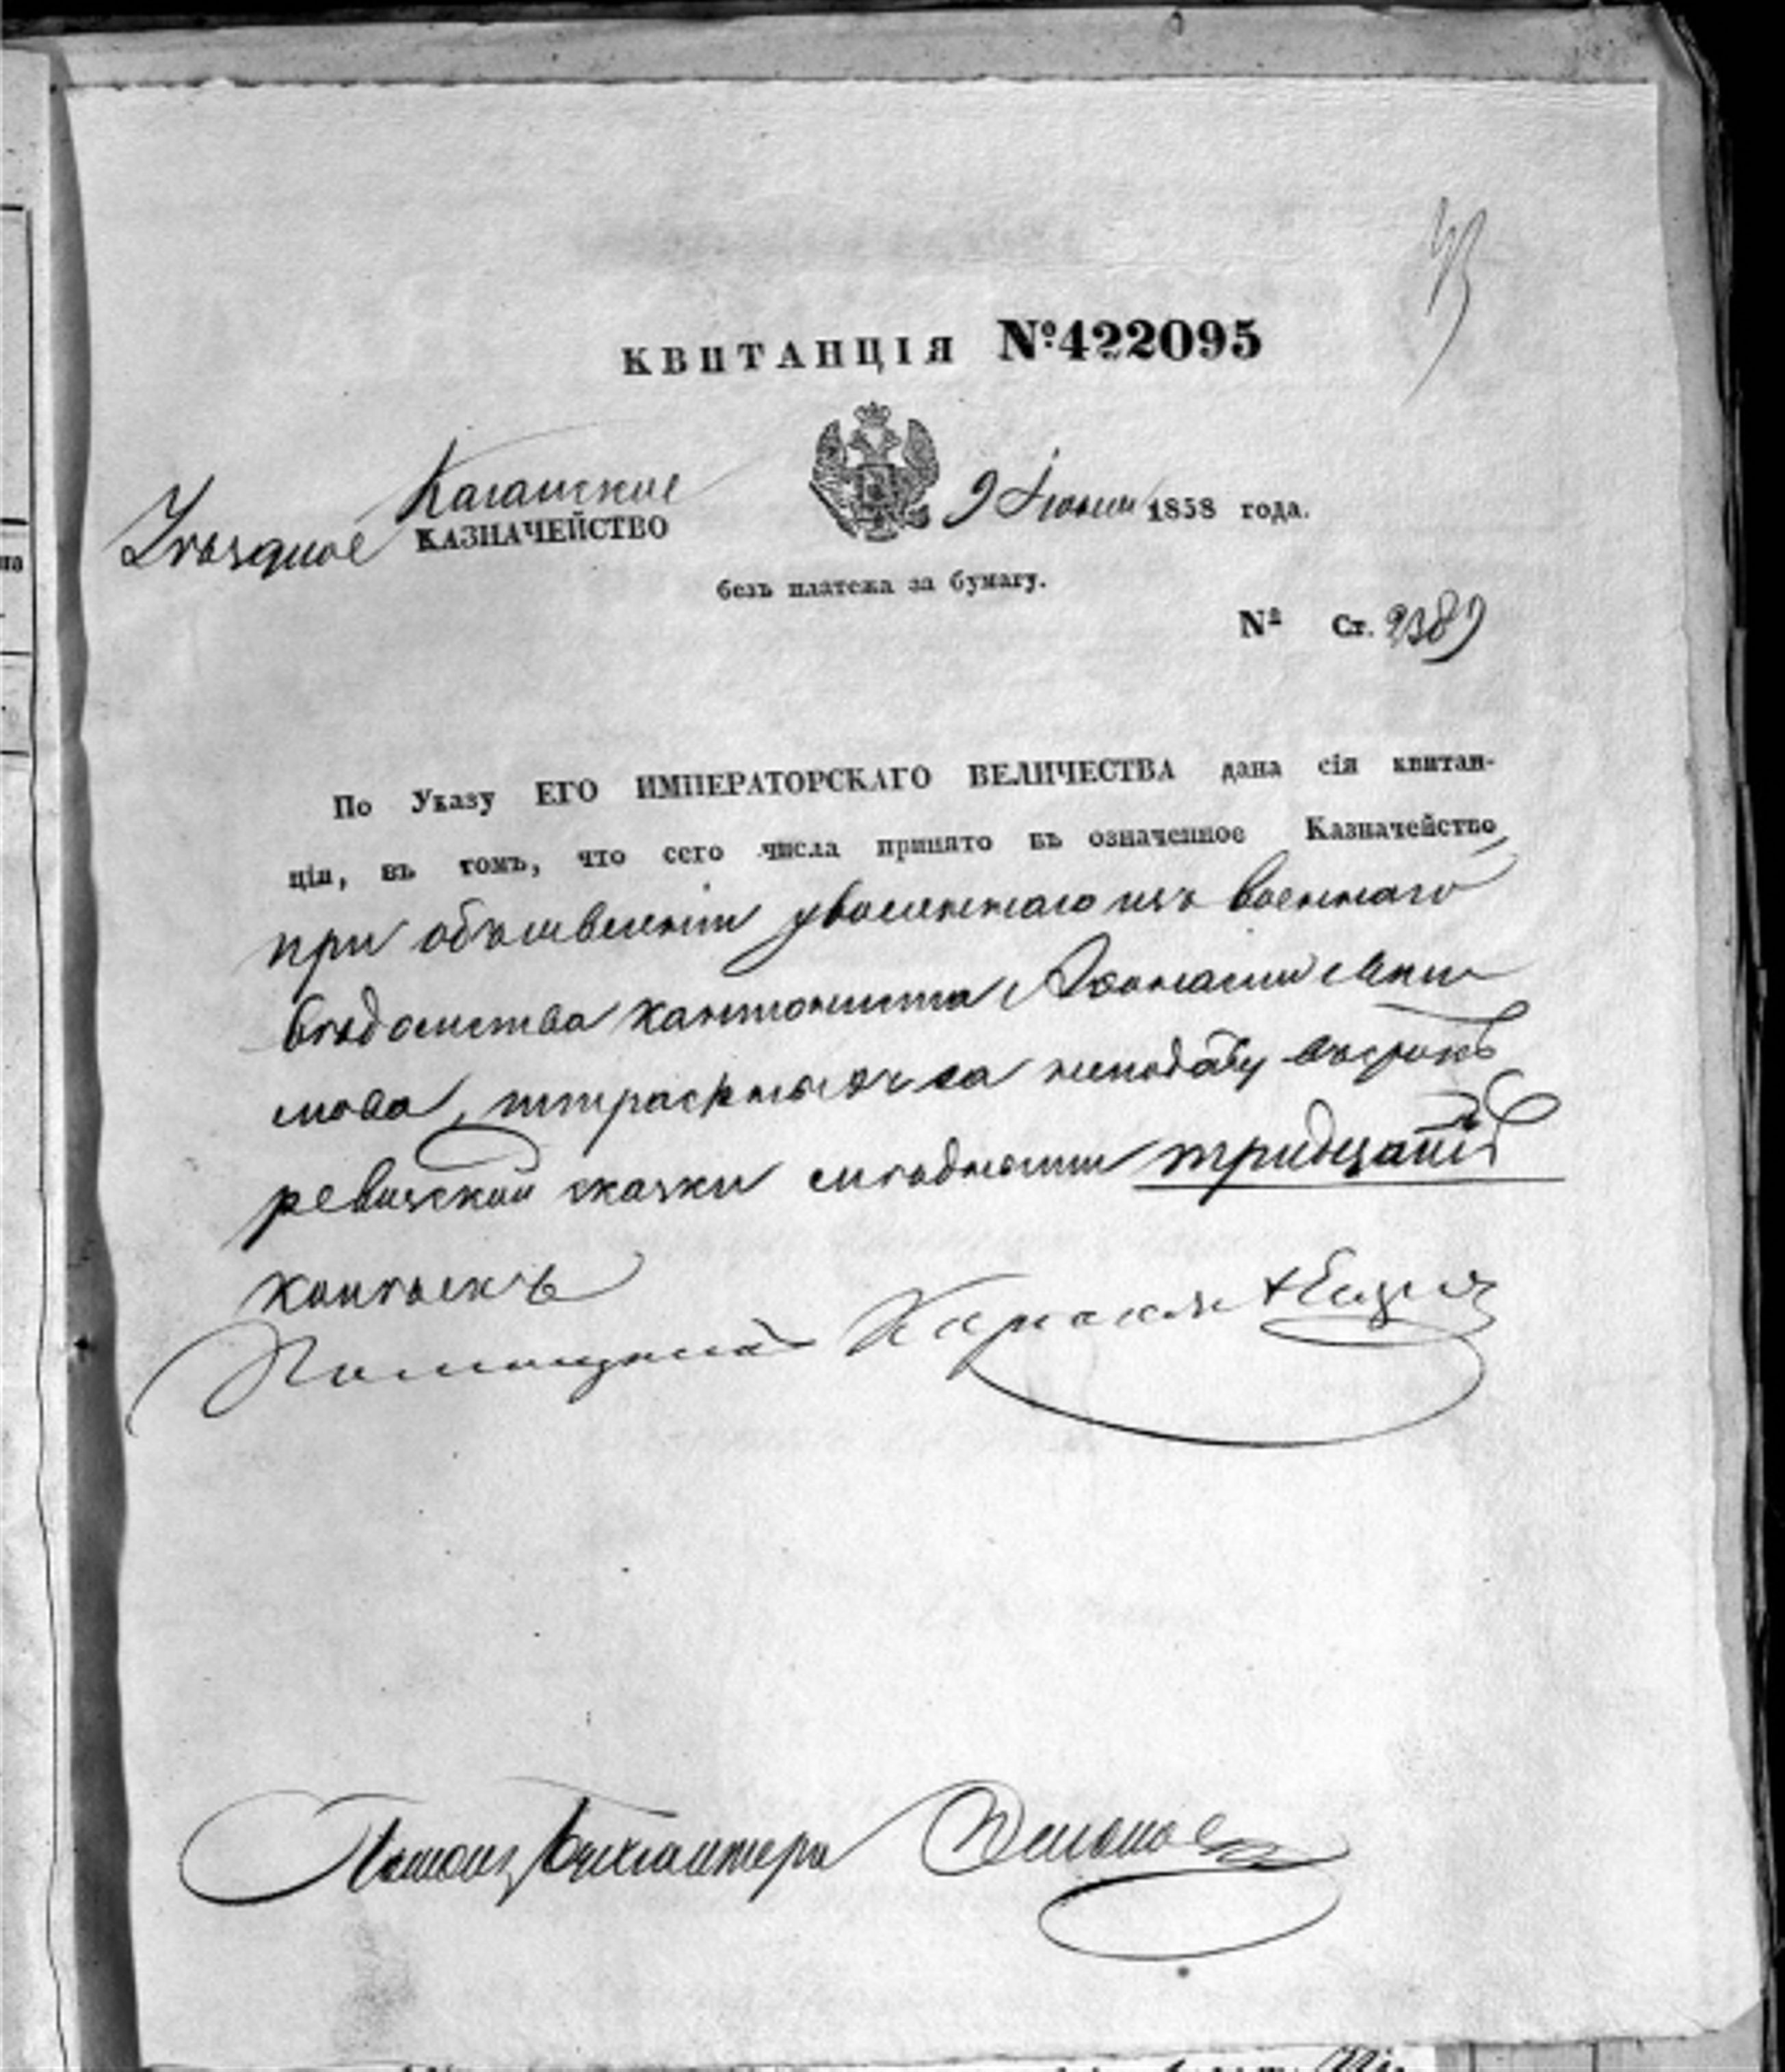 КВИТАНЦІЯ №422095
Казанское
Уѣздное КАЗНАЧЕЙСТВО
9 Іюня 1858 года.
безъ платежа за бумагу.
№ Ст. 2389
По Указу ЕГО ИМПЕРАТОРСКАГО ВЕЛИЧЕСТВА дана сія квитан-
ція, въ томъ, что сего числа принято въ означенное Казначейство,
при объявленіи уволеннаго изъ военнаго
вѣдомства кантониста Афонасія Аки
мова, штрафныхъ за неподачу въ срокъ
ревизской сказки слѣдующія тридцать
копѣекъ
Помощ Бухгалтера